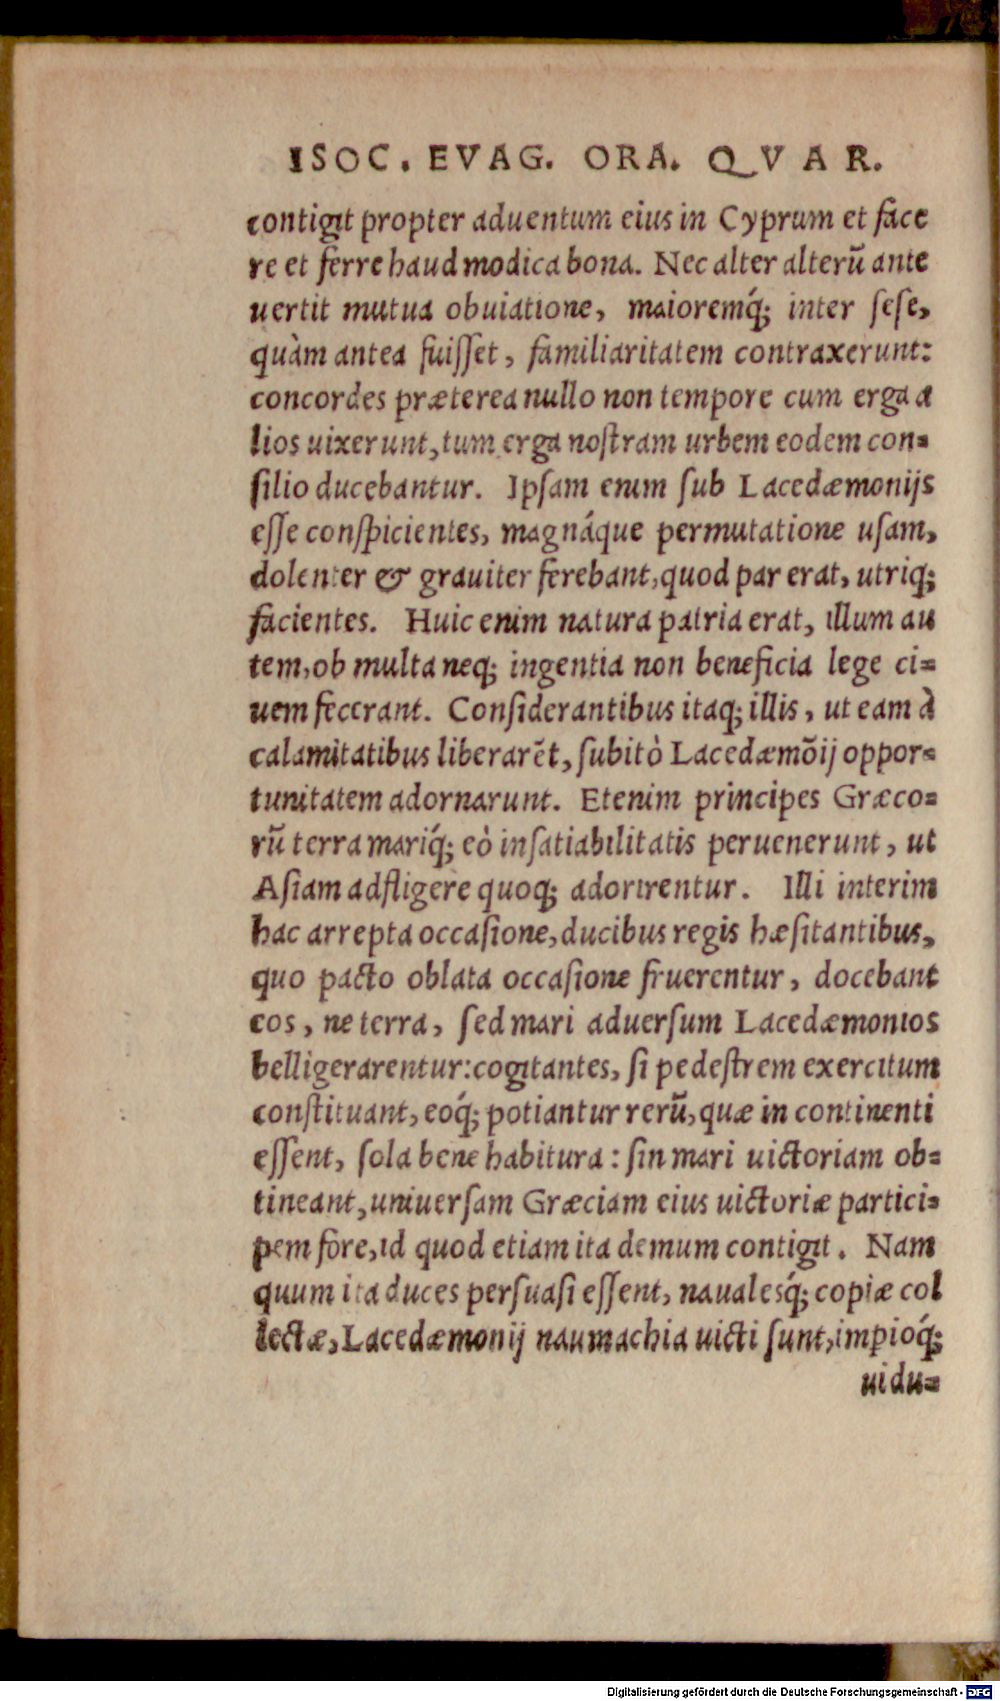 ISOC. EVAG. ORA. QVAR.
contigit propter aduentum eius in Cyprum et face
re et ferre haud modica bona. Nec alter alterũ ante
uertit mutua obuiatione, maioremq́; inter sese,
quàm antea fuisset, familiaritatem contraxerunt:
concordes præterea nullo non tempore cum erga a
lios uixerunt, tum erga nostram urbem eodem con-
silio ducebantur. Ipsam enim sub Lacedæmonijs
esse conspicientes, magnáque permutatione usam,
dolenter & grauiter ferebant, quod par erat, utriq;
facientes. Huic enim natura patria erat, illum au
tem, ob multa neq; ingentia non beneficia lege ci-
uem fecerant. Considerantibus itaq; illis, ut eam à
calamitatibus liberarẽt, subitò Lacedæmõij oppor-
tunitatem adornarunt. Etenim principes Græco-
rũ terra mariq́; eò insatiabilitatis peruenerunt, ut
Asiam adfligere quoq; adorirentur. Illi interim
hac arrepta occasione, ducibus regis hæsitantibus,
quo pacto oblata occasione fruerentur, docebant
eos, ne terra, sed mari aduersum Lacedæmonios
belligerarentur: cogitantes, si pedestrem exercitum
constituant, eoq́; potiantur rerũ, quæ in continenti
essent, sola bene habitura: sin mari uictoriam ob-
tineant, uniuersam Græciam eius uictoriæ partici-
pem fore, id quod etiam ita demum contigit. Nam
quum ita duces persuasi essent, naualesq́; copiæ col
lectæ, Lacedæmonij naumachia uicti sunt, imṗioq́;
uidu-
Digitalisierung gefördert durch die Deutsche Forschungsgemeinschaft - DFG